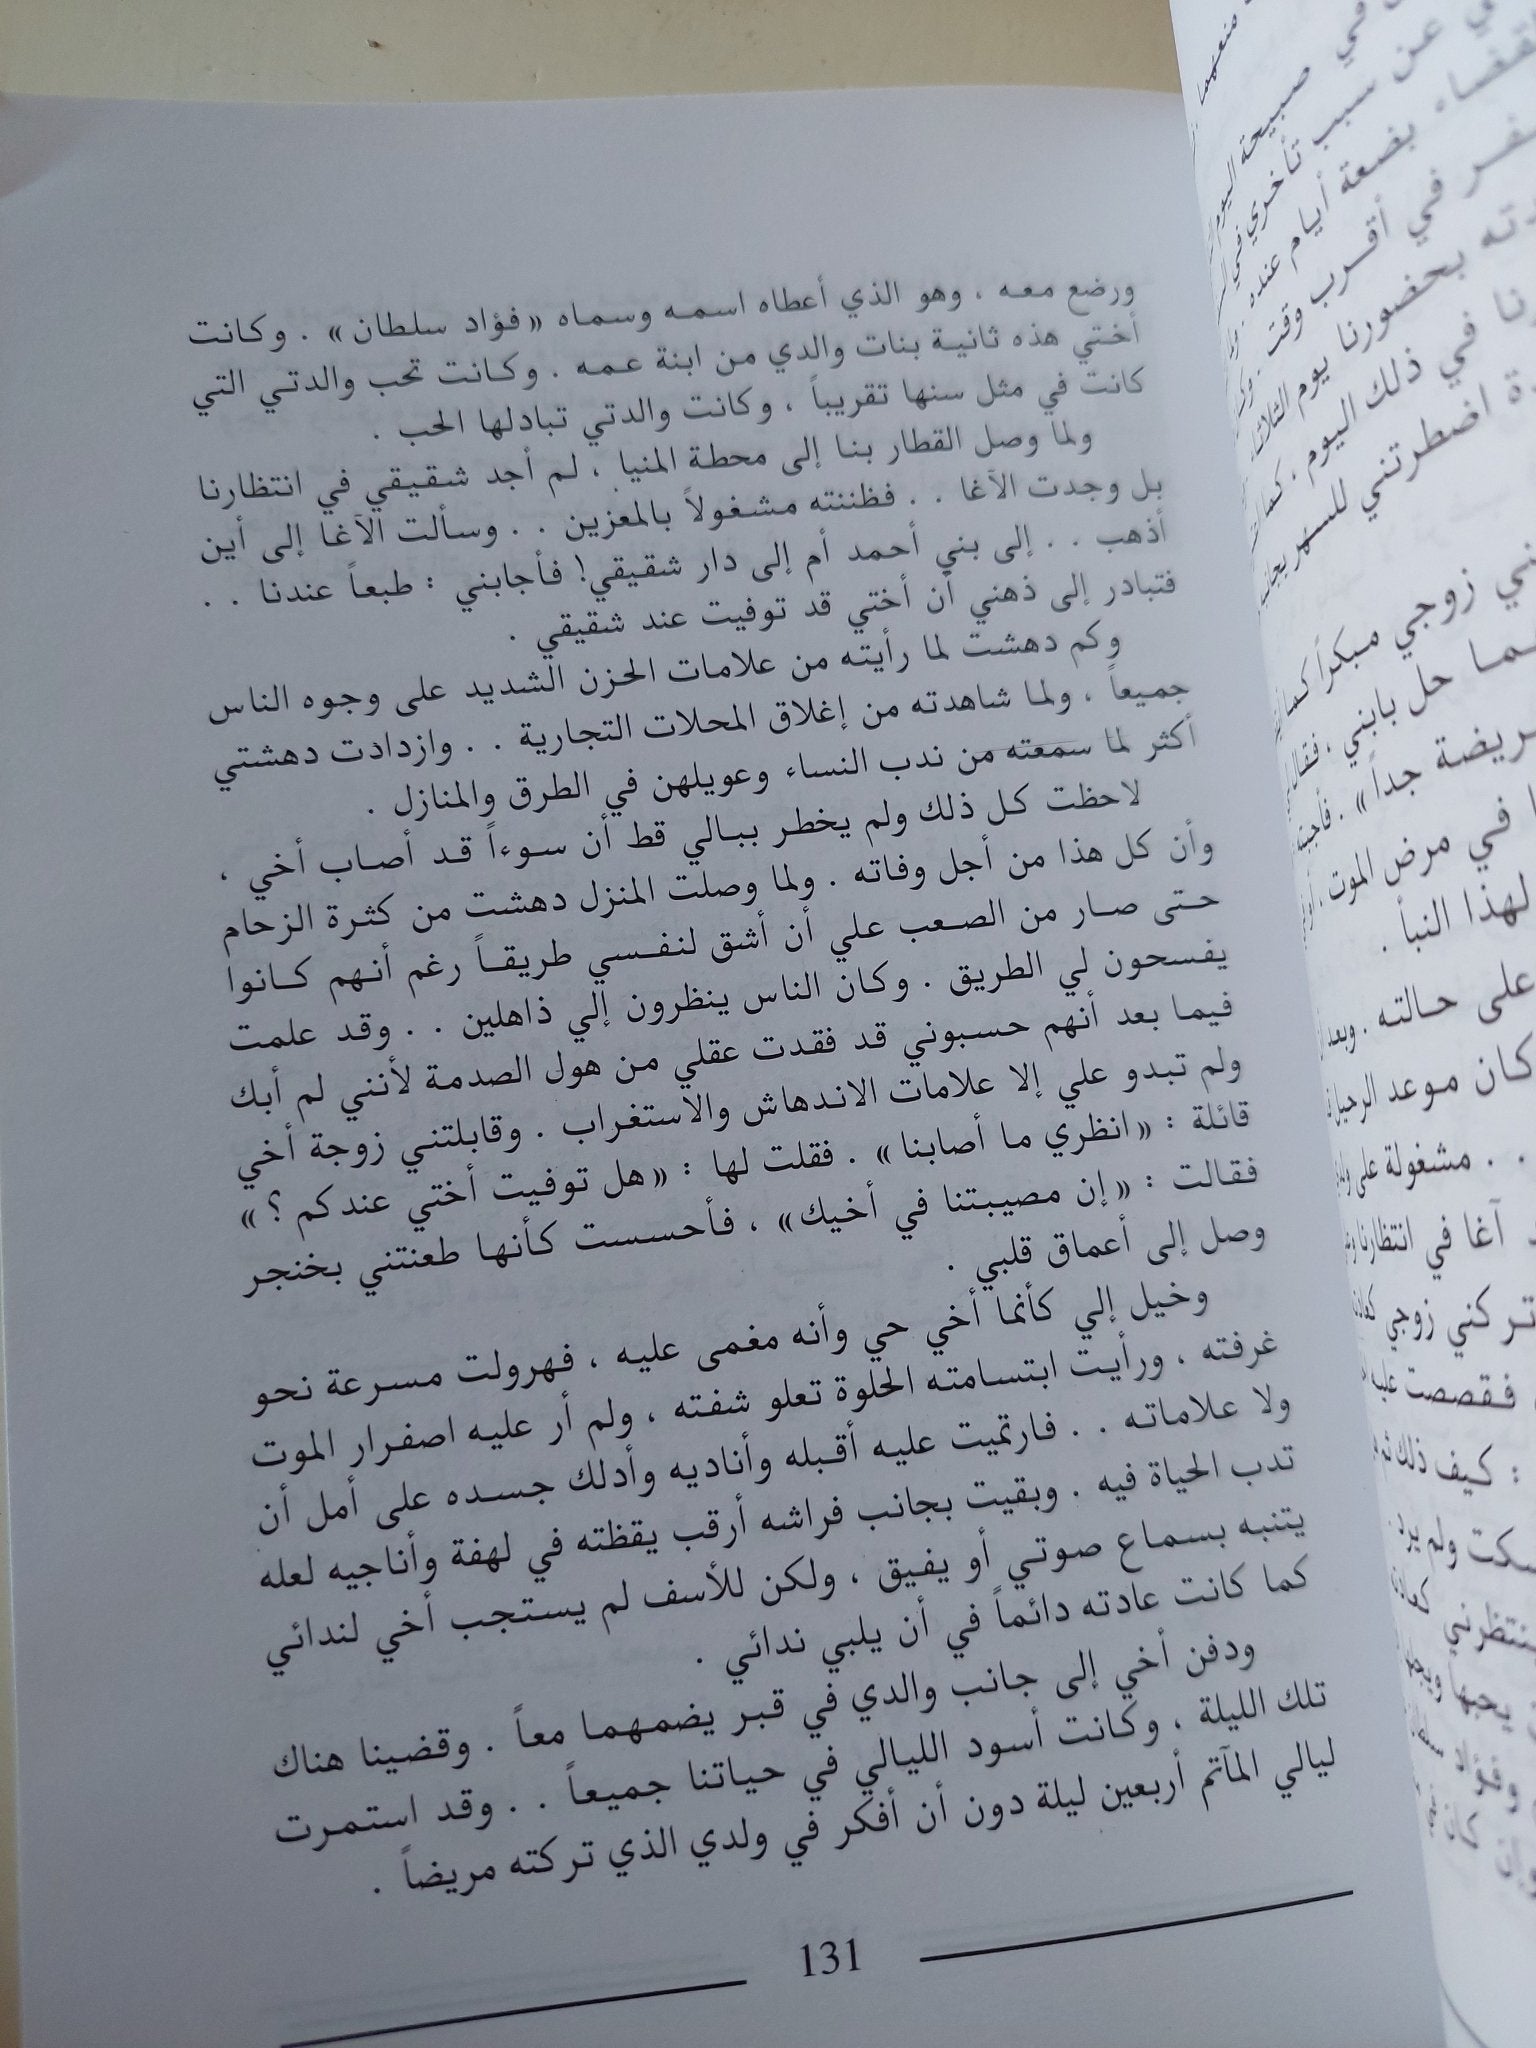 ورضع معه ، وهو الذي أعطاه اسمه وسماه «فؤاد سلطان» . وكانت
أختي هذه ثانية بنات والدي من ابنة عمه . وكانت تحب والدتي التي
كانت في مثل سنها تقريباً ، وكانت والدتي تبادلها الحب .
ولما وصل القطار بنا إلى محطة المنيا ، لم أجد شقيقي في انتظارنا
بل وجدت الآغا . . فظننته مشغولاً بالمعزين . . وسألت الآغا إلى أين
أذهب . . إلى بني أحمد أم إلى دار شقيقي! فأجابني : طبعاً عندنا . .
فتبادر إلى ذهني أن أختي قد توفيت عند شقيقي .
وكم دهشت لما رأيته من علامات الحزن الشديد على وجوه الناس
جميعاً ، ولما شاهدته من إغلاق المحلات التجارية . . وازدادت دهشتي
أكثر لما سمعته من ندب النساء وعويلهن في الطرق والمنازل .
لاحظت كل ذلك ولم يخطر ببالي قط أن سوءاً قد أصاب أخي ،
وأن كل هذا من أجل وفاته . ولما وصلت المنزل دهشت من كثرة الزحام
حتى صار من الصعب علي أن أشق لنفسي طريقاً رغم أنهم كانوا
يفسحون لي الطريق . وكان الناس ينظرون إلي ذاهلين . . وقد علمت
فيما بعد أنهم حسبوني قد فقدت عقلي من هول الصدمة لأنني لم أبك
ولم تبدو علي إلا علامات الاندهاش والاستغراب . وقابلتني زوجة أخي
قائلة : «انظري ما أصابنا» . فقلت لها : «هل توفيت أختي عندكم ؟»
فقالت : «إن مصيبتنا في أخيك» ، فأحسست كأنها طعنتني بخنجر
وصل إلى أعماق قلبي .
وخيل إلي كأنما أخي حي وأنه مغمى عليه ، فهرولت مسرعة نحو
غرفته ، ورأيت ابتسامته الحلوة تعلو شفته ، ولم أر عليه اصفرار الموت
ولا علاماته . . فارتميت عليه أقبله وأناديه وأدلك جسده على أمل أن
تدب الحياة فيه . وبقيت بجانب فراشه أرقب يقظته في لهفة وأناجيه لعله
يتنبه بسماع صوتي أو يفيق ، ولكن للأسف لم يستجب أخي لندائي
كما كانت عادته دائماً في أن يلبي ندائي .
ودفن أخي إلى جانب والدي في قبر يضمهما معاً . وقضينا هناك
تلك الليلة ، وكانت أسود الليالي في حياتنا جميعاً . . وقد استمرت
ليالي المآتم أربعين ليلة دون أن أفكر في ولدي الذي تركته مريضاً .
131
منعهما
في صبيحة اليوم
عن سبب تأخري في
بضعة أيام عنده
في أقرب وقت
بحضورنا يوم الثلاثاء
في ذلك اليوم
اضطرتني للسهر بجانبه
زوجي مبكراً
حل بابني ، فقال
جداً» . فأجبته
في مرض الموت
لهذا النبأ .
على حالته . وبعد
كان موعد الرحيل
. . مشغولة على
آغا في انتظارنا
تركني زوجي
فقصصت عليه
: كيف ذلك
ولم يرد .